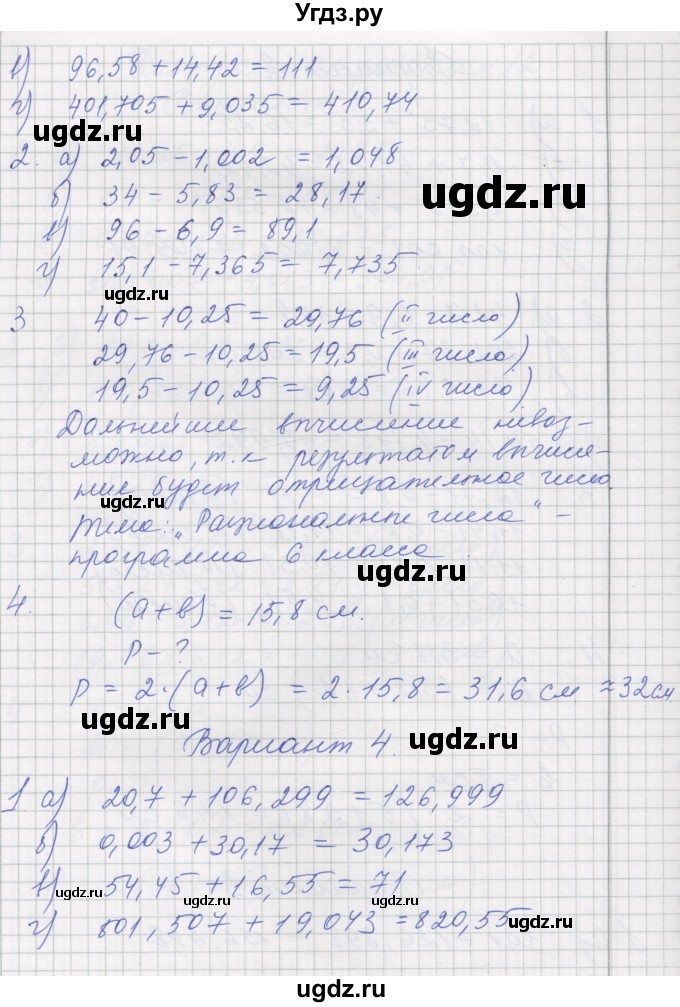 Угдз.ру
в) 96,58 + 14,42 = 111
г) 401,705 + 9,035 = 410,74
ugdz.ru
2. а) 2,05 - 1,002 = 1,048
ugdz.ru
б) 34 - 5,83 = 28,17.
в) 96 - 6,9 = 89,1
г) 15,1 - 7,365 = 7,735
ugdz.ru
3 40 - 10,25 = 29,76 (II число)
29,76 - 10,25 = 19,5 (III число)
19,5 - 10,25 = 9,25 (IV число)
ugdz.ru
Дальнейшие вычисление невоз-
можно, т.к результатом вычисле-
ние будет отрицательное число.
ugdz.ru
Тема: „Рациональные числа" -
программа 6 класса.
ugdz.ru
4. (a+b) = 15,8 см.
P - ?
P = 2·(a+b) = 2·15,8 = 31,6 см ≈ 32 см
ugdz.ru
Вариант 4.
ugdz.ru
1. а) 20,7 + 106,299 = 126,999
б) 0,003 + 30,17 = 30,173
в) 54,45 + 16,55 = 71
ugdz.ru
ugdz.ru
г) 801,507 + 19,043 = 820,55
ugdz.ru
ugdz.ru
ugdz.ru